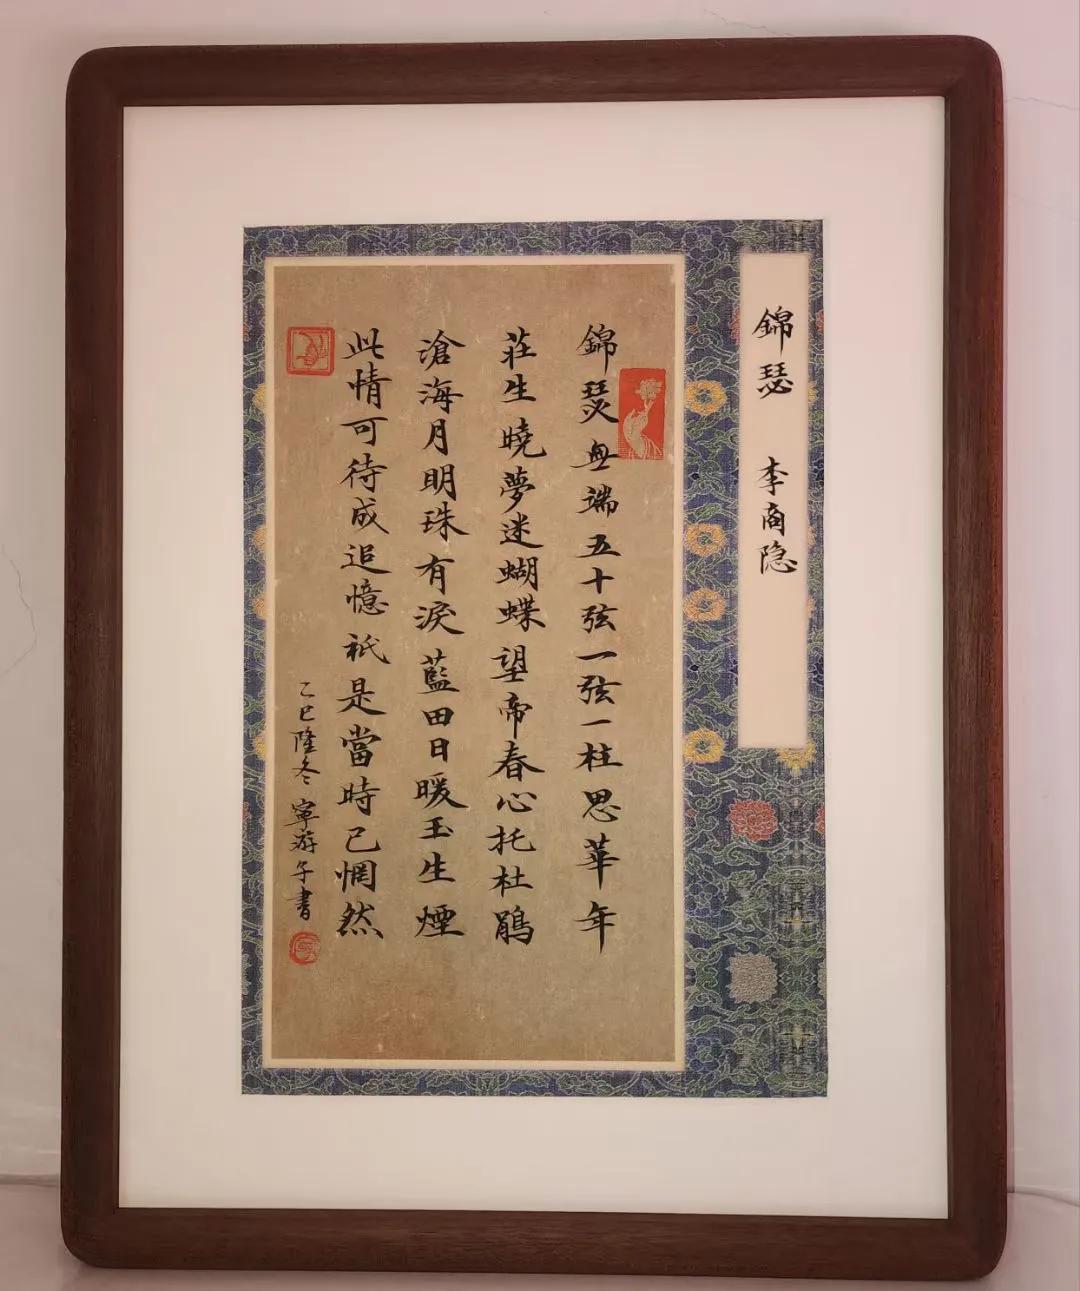 錦瑟 李商隐
錦瑟無端五十弦一弦一柱思華年
莊生曉夢迷蝴蝶望帝春心托杜鵑
滄海月明珠有淚藍田日暖玉生煙
此情可待成追憶祇是當時已惘然
乙巳隆冬 寧游子書